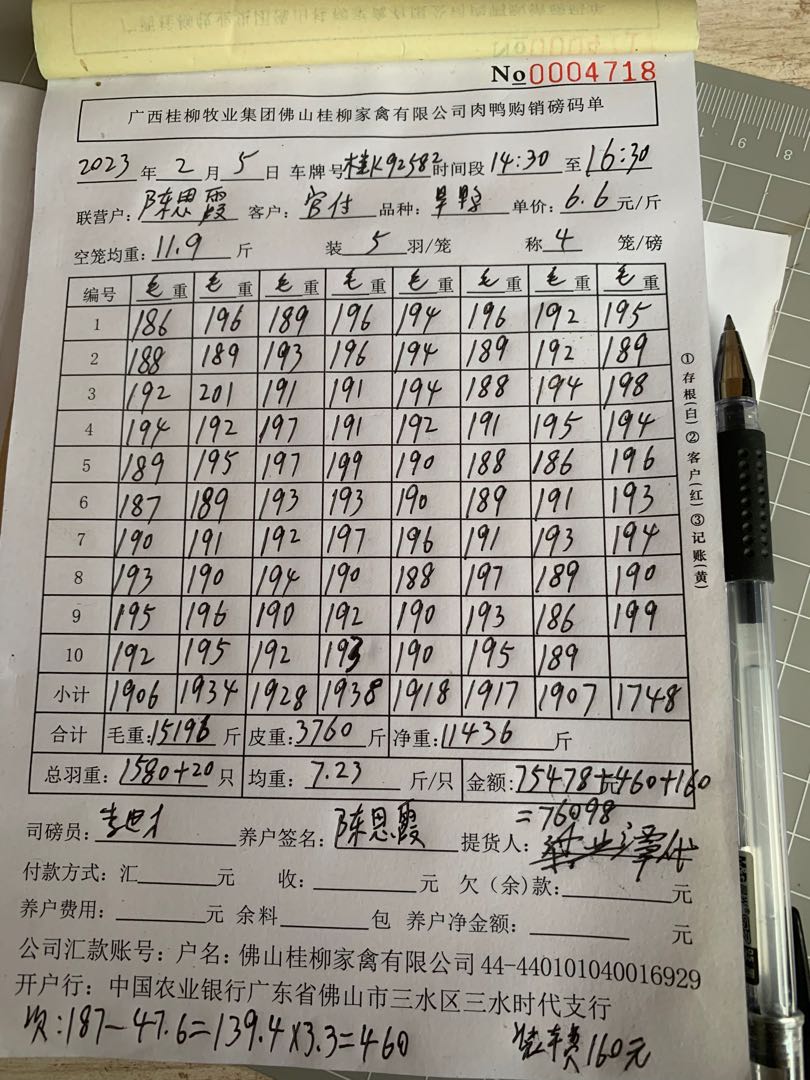 No0004718
广西桂柳牧业集团佛山桂柳家禽有限公司肉鸭购销磅码单
2023年2月5日 车牌号桂K92582时间段14:30至16:30
联营户：陈思霞 客户：官付 品种：旱鸭 单价：6.6元/斤
空笼均重：11.9斤 装5羽/笼 称4笼/磅
编号 毛重 毛重 毛重 毛重 毛重 毛重 毛重 毛重
1 186 196 189 196 194 196 192 195
2 188 189 193 196 194 189 192 189
3 192 201 191 191 194 188 194 198
4 194 192 197 191 192 191 195 194
5 189 195 197 199 190 188 186 196
6 187 189 193 193 190 189 191 193
7 190 191 192 197 196 191 193 194
8 193 190 194 190 188 197 189 190
9 195 196 190 192 190 193 186 199
10 192 195 192 193 190 195 189
小计 1906 1934 1928 1938 1918 1917 1907 1748
合计 毛重:15196斤 皮重:3760斤 净重:11436斤
总羽重：1580+20只 均重：7.23斤/只 金额:75478+460+160
=76098
司磅员： 养户签名：陈思霞 提货人：
付款方式：汇 元 收： 元 欠（余）款： 元
养户费用： 元 余料 包 养户净金额： 元
公司汇款账号：户名：佛山桂柳家禽有限公司44-440101040016929
开户行：中国农业银行广东省佛山市三水区三水时代支行
次:187-47.6=139.4×3.3=460
装车费160元
①存根(白)②客户(红)③记账(黄)